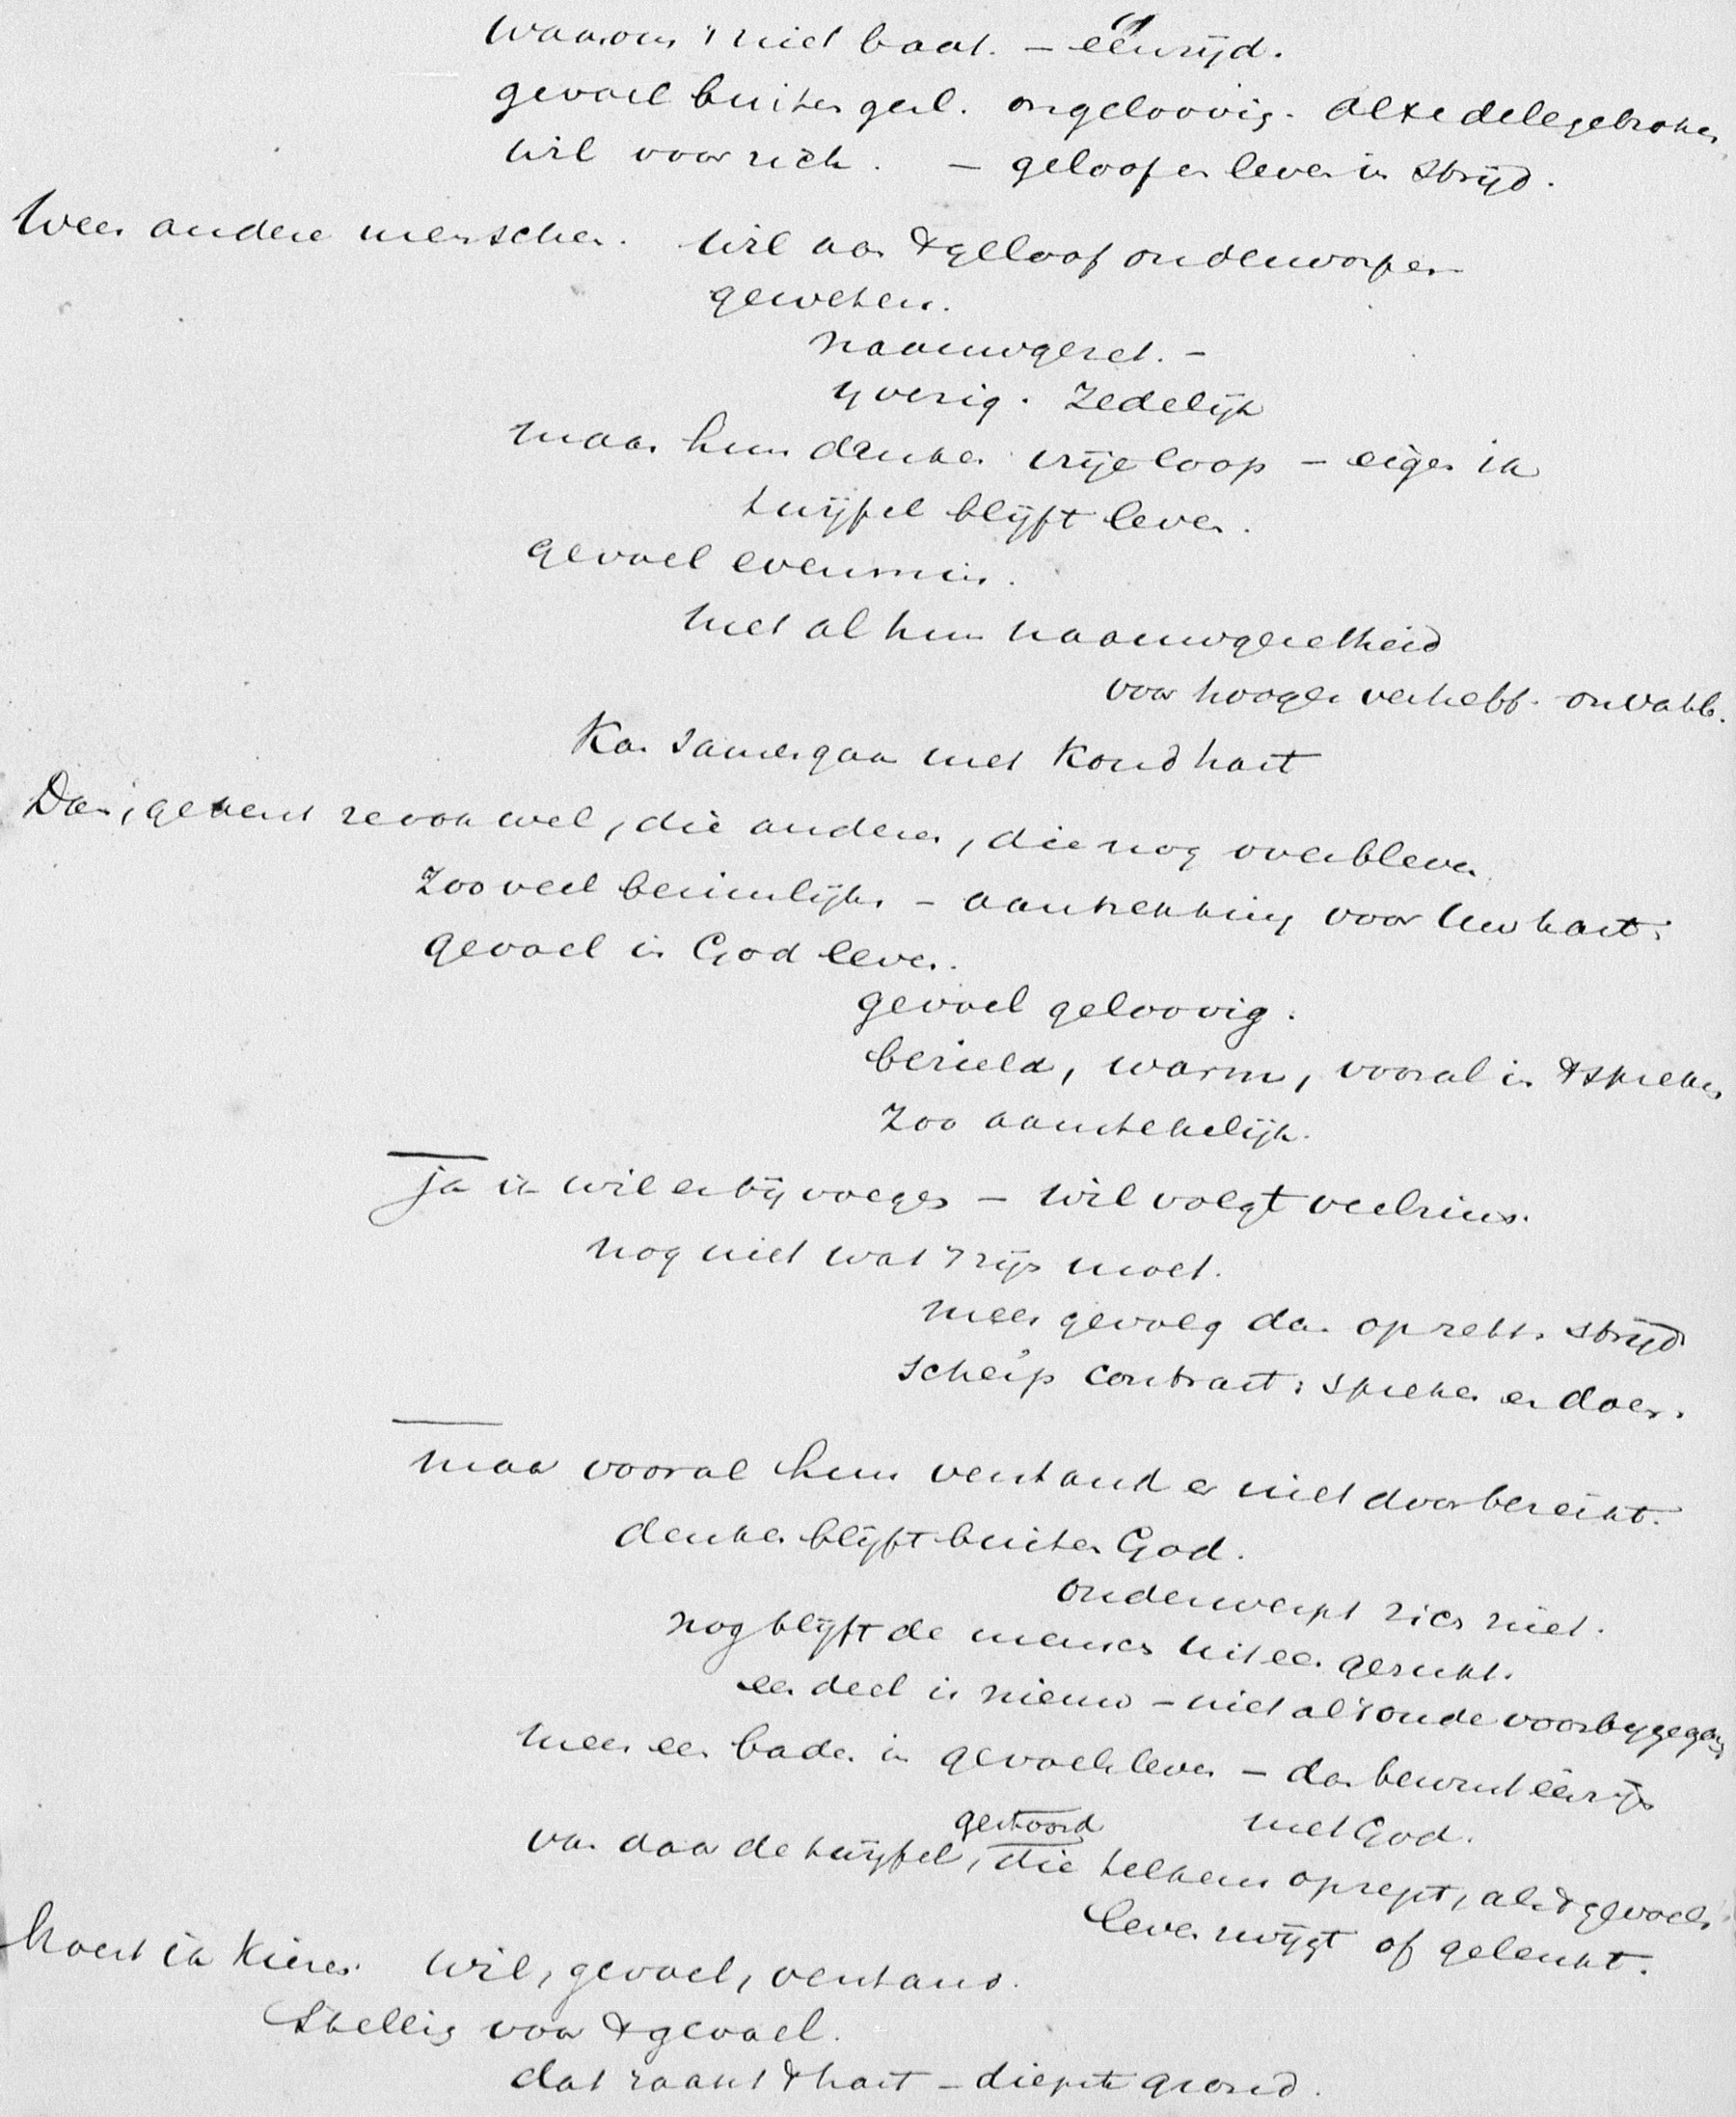 Waarom 't niet baat. – éénzijd.
gevoel buiten gesl. ongeloovig. al te dele gebroken
wil voor zich. – geloof en leven in strijd.
Weer andere menschen. wil aan 't geloof onderworpen
geweten.
naauwgezet. –
yverig. Zedelijk
maar hun denken vrije loop – eigen ik
twijfel blijft leven.
gevoel evenmin.
met al hun naauwgezetheid
voor hooger verheff. onvatb.
Kan samengaan met Koud hart
Dan, ge kent ze ook wel, die anderen, die nog overbleven
Zooveel beminlijks – aantrekking voor Uw hart.
gevoel in God leven.
gevoel geloovig.
bezield, warm, vooral in 't spreken
Zoo aantrekelijk.
ja ik wil er bij voegen – wil volgt veelzins.
nog niet wat 't zijn moet.
meer gevolg dan opzett. strijd
scherp contrast: spreken en doen.
maar vooral hun verstand er niet door bereikt.
denken blijft buiten God.
onderwerpt zich niet.
nog blijft de mensch uiteen gerukt.
een deel is nieuw – niet al 't oude voorbygegaan
meer een baden in gevoelsleven – dan bewust één zijn
met God.
van daar de twijfel, die gestoord telkens oprijst, als 't gevoels
leven zwijgt of gelenkt.
Moest ik Kiezen wil, gevoel, verstand.
Stellig voor 't gevoel.
dat raakt 't hart – diepste grond.